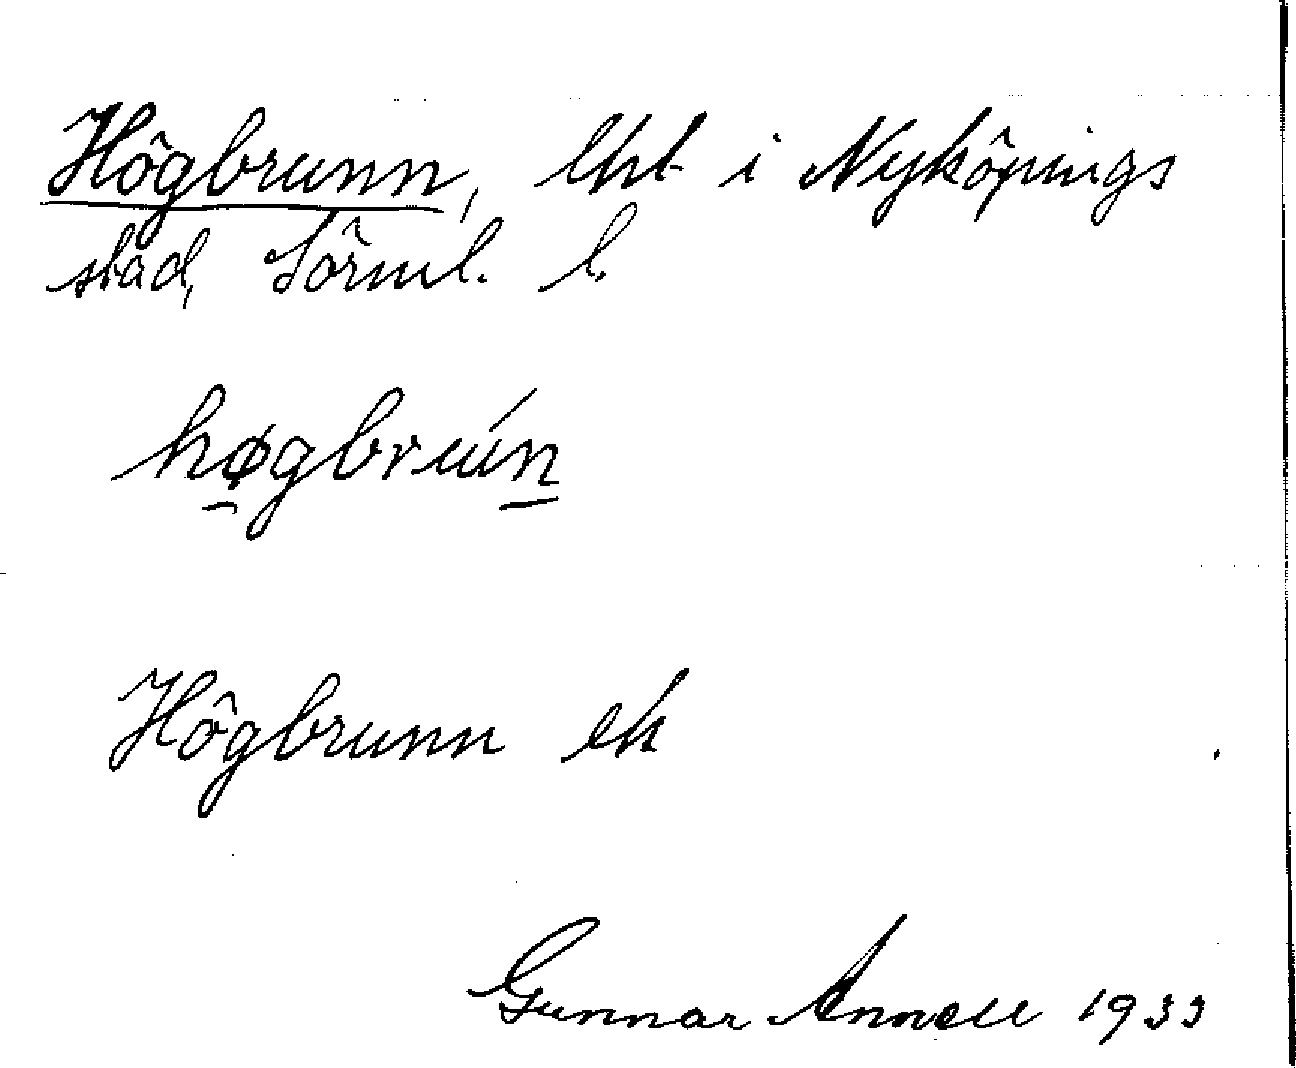 Högbrunn, lht i Nyköpings
stad, Sörml. l.
høgbrún
Högbrunn ek
Gunnar Annell 1933